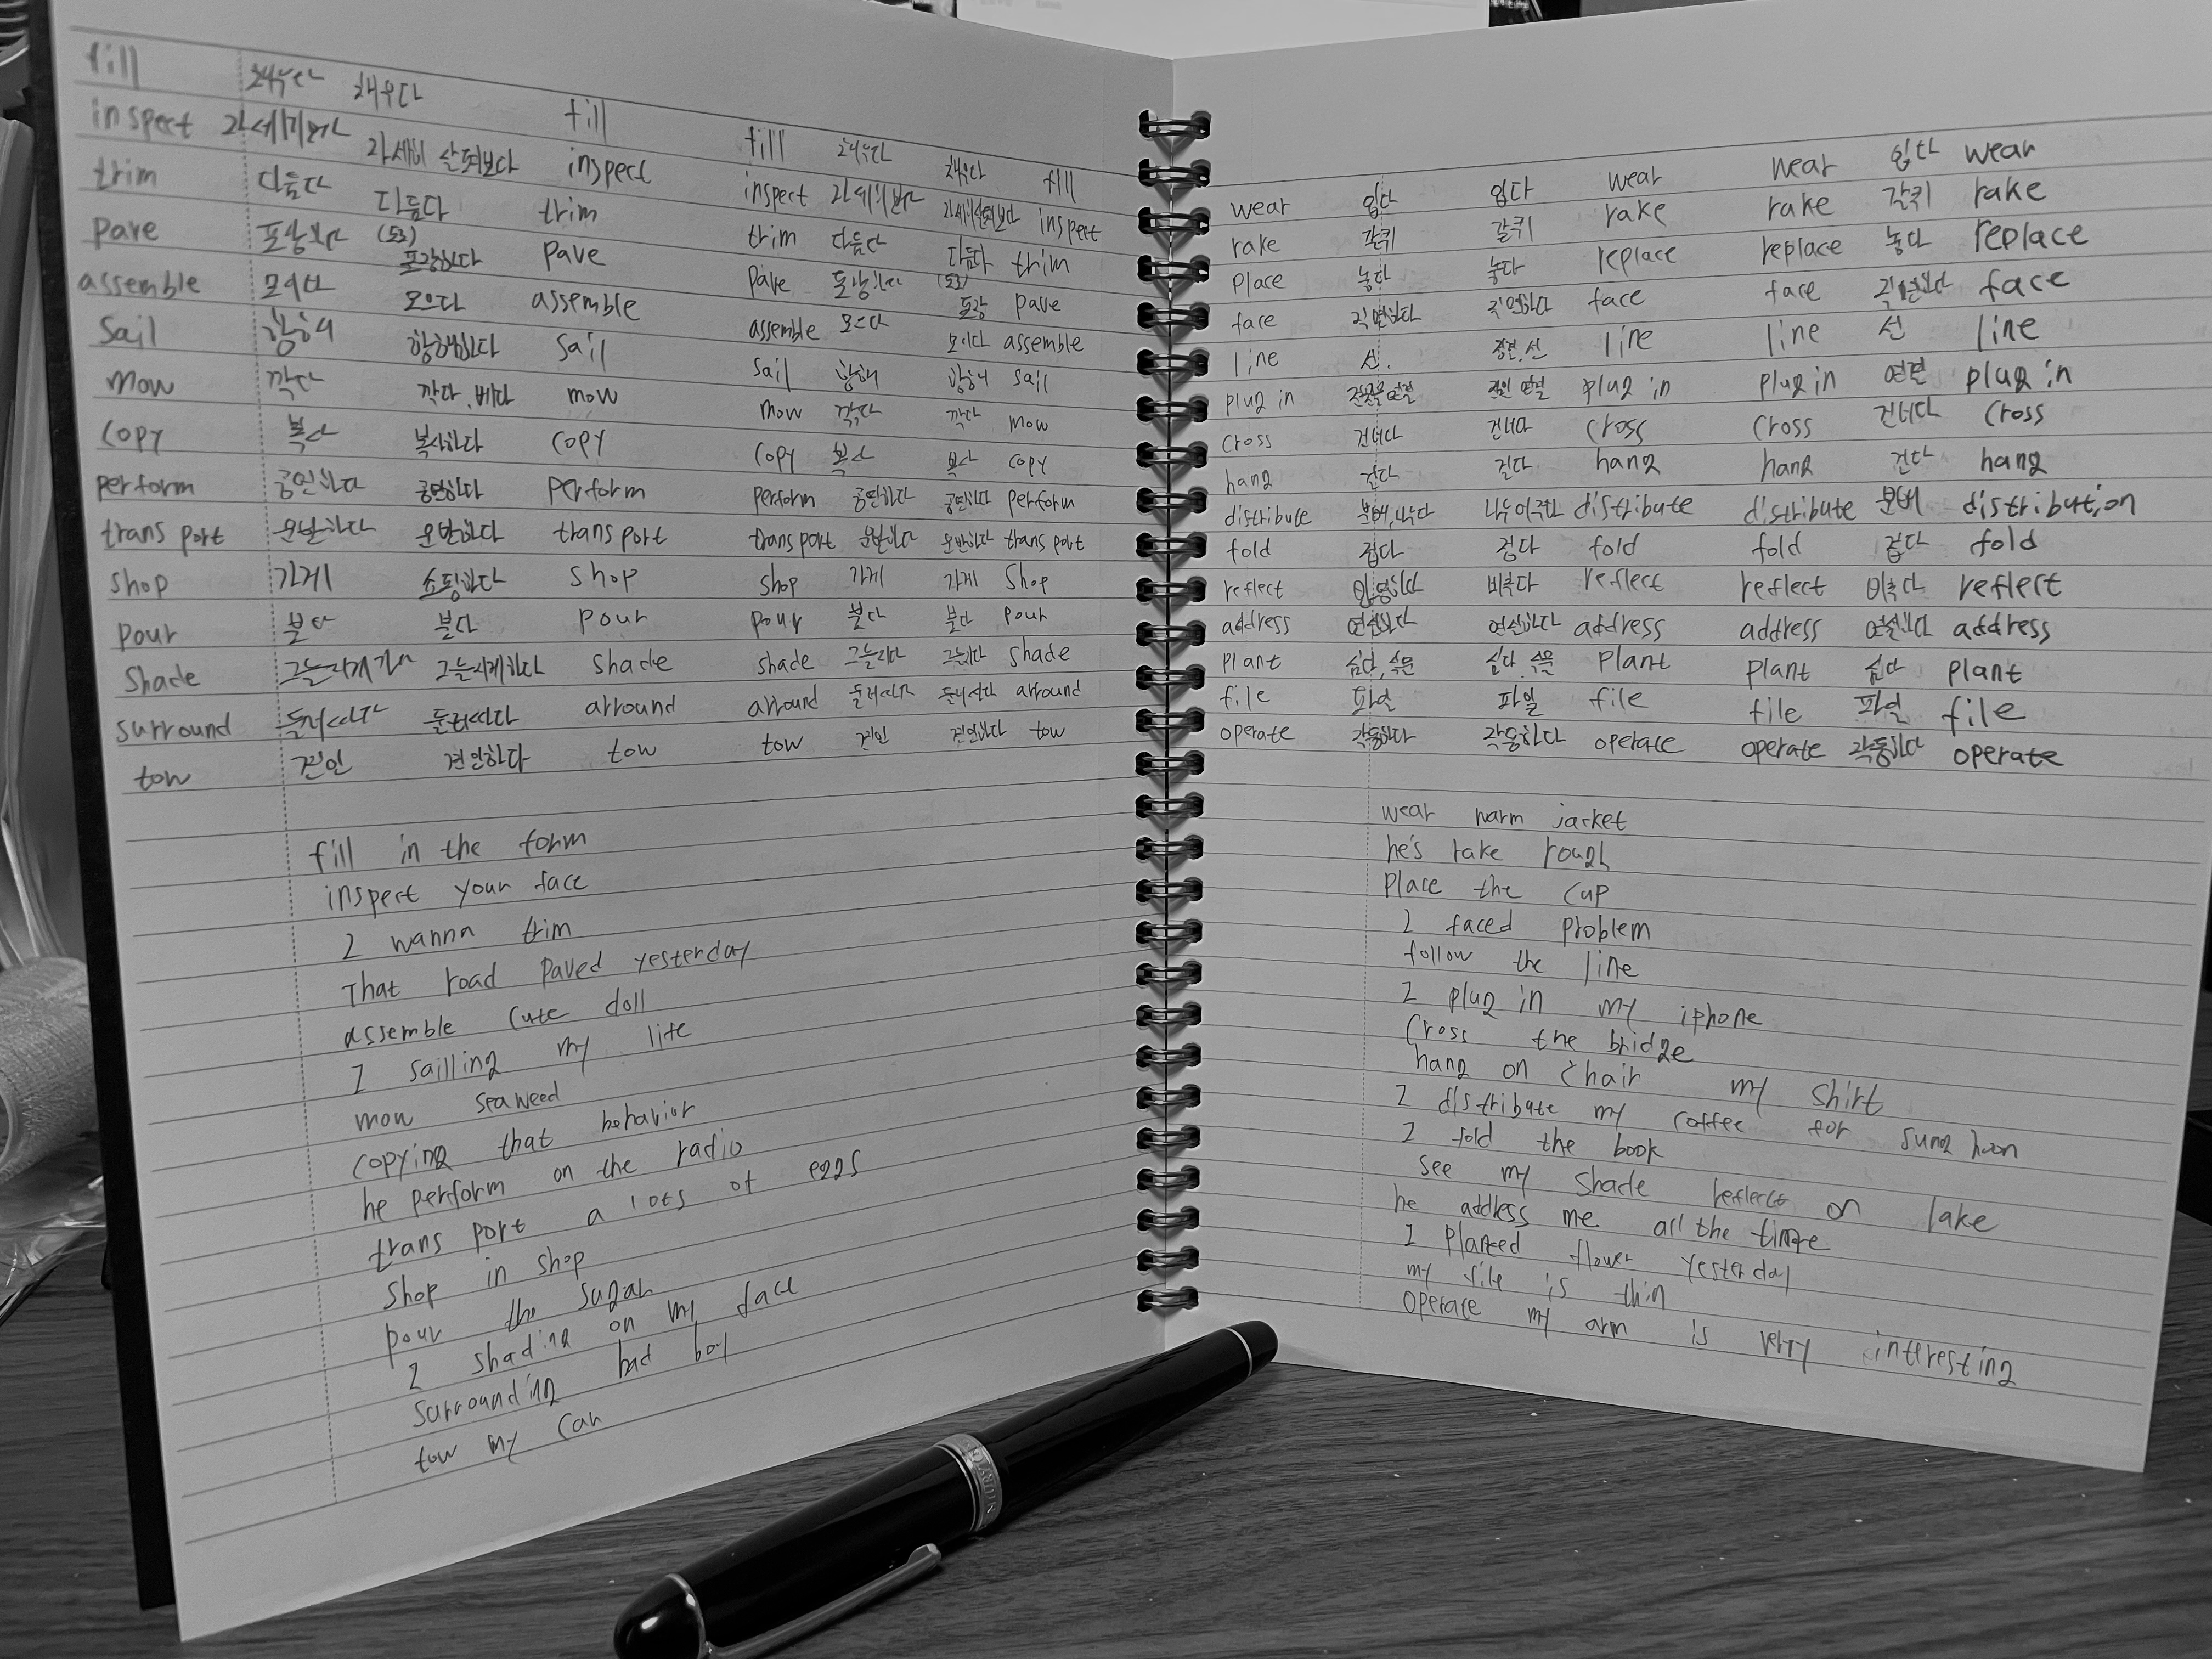 fill 채우다 채우다 fill fill 채우다 채우다 fill
inspect 자세히보다 자세히 살펴보다 inspect inspect 자세히보다 자세히살펴보다 inspect
trim 다듬다 다듬다 trim trim 다듬다 다듬다 trim
pave 포장하다 (도로)포장하다 pave pave 포장하다 (도로)포장 pave
assemble 모이다 모으다 assemble assemble 모으다 모이다 assemble
sail 항해 항해하다 sail sail 항해 항해 sail
mow 깍다 깍다, 베다 mow mow 깍다 깍다 mow
copy 복사 복사하다 copy copy 복사 복사 copy
perform 공연하다 공연하다 perform perform 공연하다 공연하다 perform
trans port 운반하다 운반하다 trans port trans port 운반하다 운반하다 trans port
shop 가게 쇼핑하다 shop shop 가게 가게 shop
pour 붇다 붇다 pour pour 붇다 붇다 pour
shade 그늘지게하다 그늘지게하다 shade shade 그늘지다 그늘지다 shade
surround 둘러싸다 둘러싸다 arround arround 둘러싸다 둘러싸다 arround
tow 견인 견인하다 tow tow 견인 견인하다 tow
fill in the form
inspect your face
I wanna trim
That road paved yesterday
assemble cute doll
I sailling my life
mow seaweed
copying that behavior
he perform on the radio
trans port a lots of eggs
shop in shop
pour the sugar
I shading on my face
surrounding bad boy
tow my car
wear 입다 입다 wear wear 입다 wear
rake 갈퀴 갈퀴 rake rake 갈퀴 rake
place 놓다 놓다 replace replace 놓다 replace
face 직면하다 직면하다 face face 직면하다 face
line 선. 선 line line 선 line
plug in 연결 plug in plug in 연결 plug in
cross 건너다 건너다 cross cross 건너다 cross
hang 걷다 걷다 hang hang 걷다 hang
distribute 분배,나누다 나누어주다 distribute distribute 분배 distribution
fold 접다 접다 fold fold 접다 fold
reflect 반영하다 비추다 reflect reflect 비추다 reflect
address 연설하다 연설하다 address address 연설하다 address
plant 심다, 식물 심다, 식물 plant plant 심다 plant
file 파일 파일 file file 파일 file
operate 작동하다 작동하다 operate operate 작동하다 operate
wear warm jacket
he's rake rough
place the cup
I faced problem
follow the line
I plug in my iphone
cross the bridge
hang on chair my shirt
I distribute my coffee for sung hoon
I fold the book
see my shade reflect on lake
he address me all the time
I planted flower yesterday
my file is thin
operate my arm is very interesting